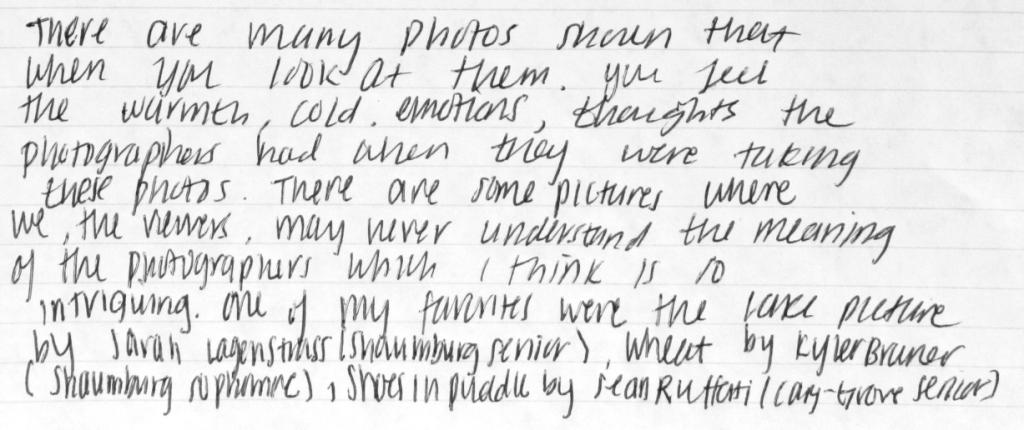 There are many photos shown that
when you look at them. you feel
the warmth, cold. emotions, thoughts the
photographers had when they were taking
these photos. There are some pictures where
we, the viewers, may never understand the meaning
of the photographers which I think is so
intriguing. One of my favorites were the lake picture
by Sarah (Shaumburg senior), Wheat by Kyler Bruner
(Shaumburg sophomore), Shoes in puddle by Sean (Cary-Grove senior)